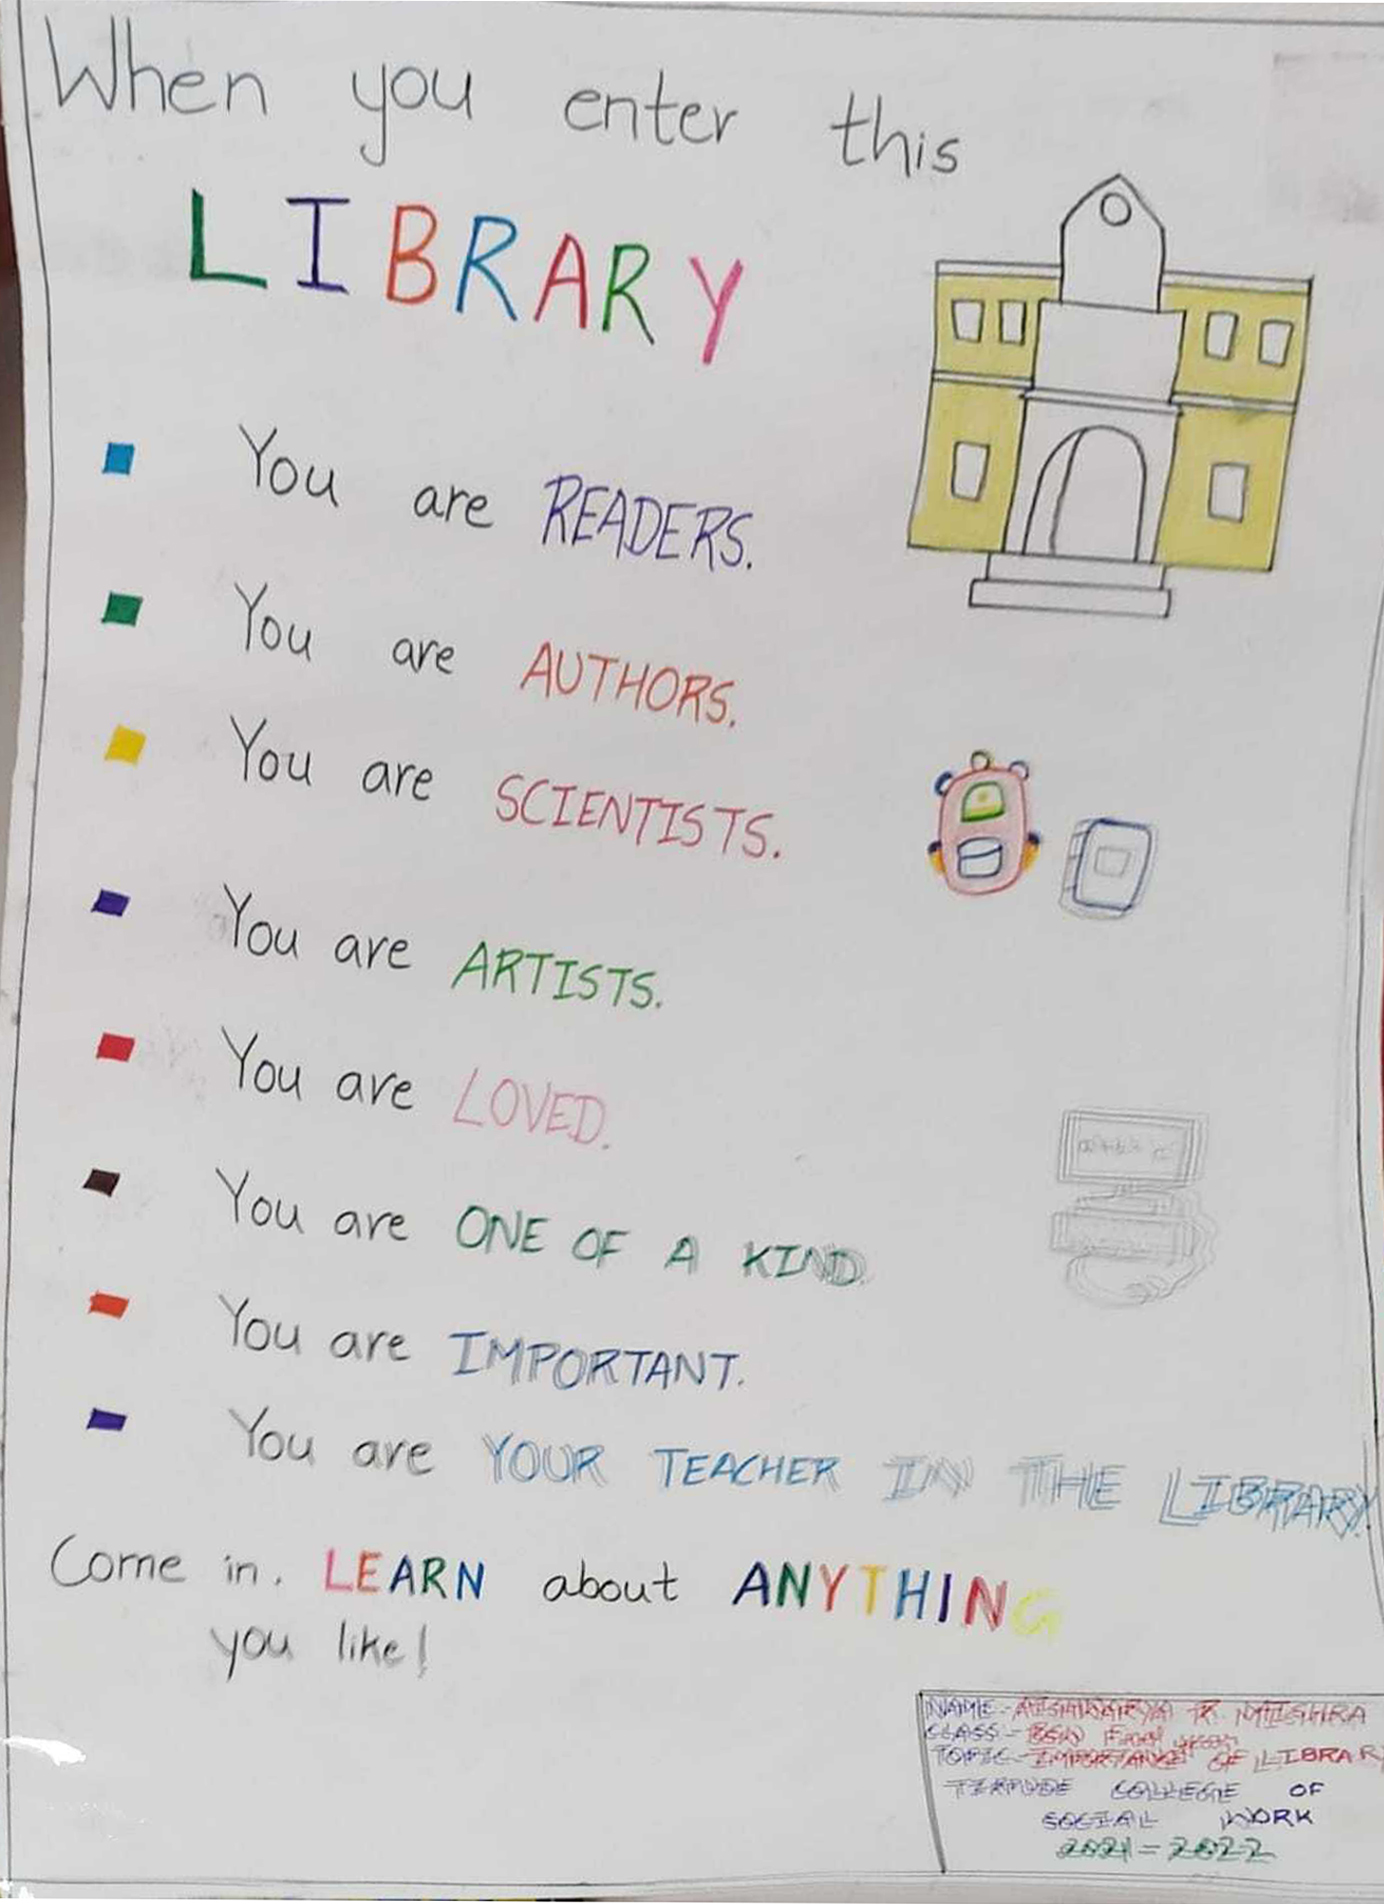 When you enter this
LIBRARY
You are READERS.
You are AUTHORS.
You are SCIENTISTS.
You are ARTISTS.
You are LOVED.
You are ONE OF A KIND.
You are IMPORTANT.
You are YOUR TEACHER IN THE LIBRARY.
Come in. LEARN about ANYTHING
you like!
NAME - AISHWARYA R. MISHRA
CLASS - BSW Final year
TOPIC - IMPORTANCE OF LIBRAR
TIRPUDE COLLEGE OF
SOCIAL WORK
2021-2022